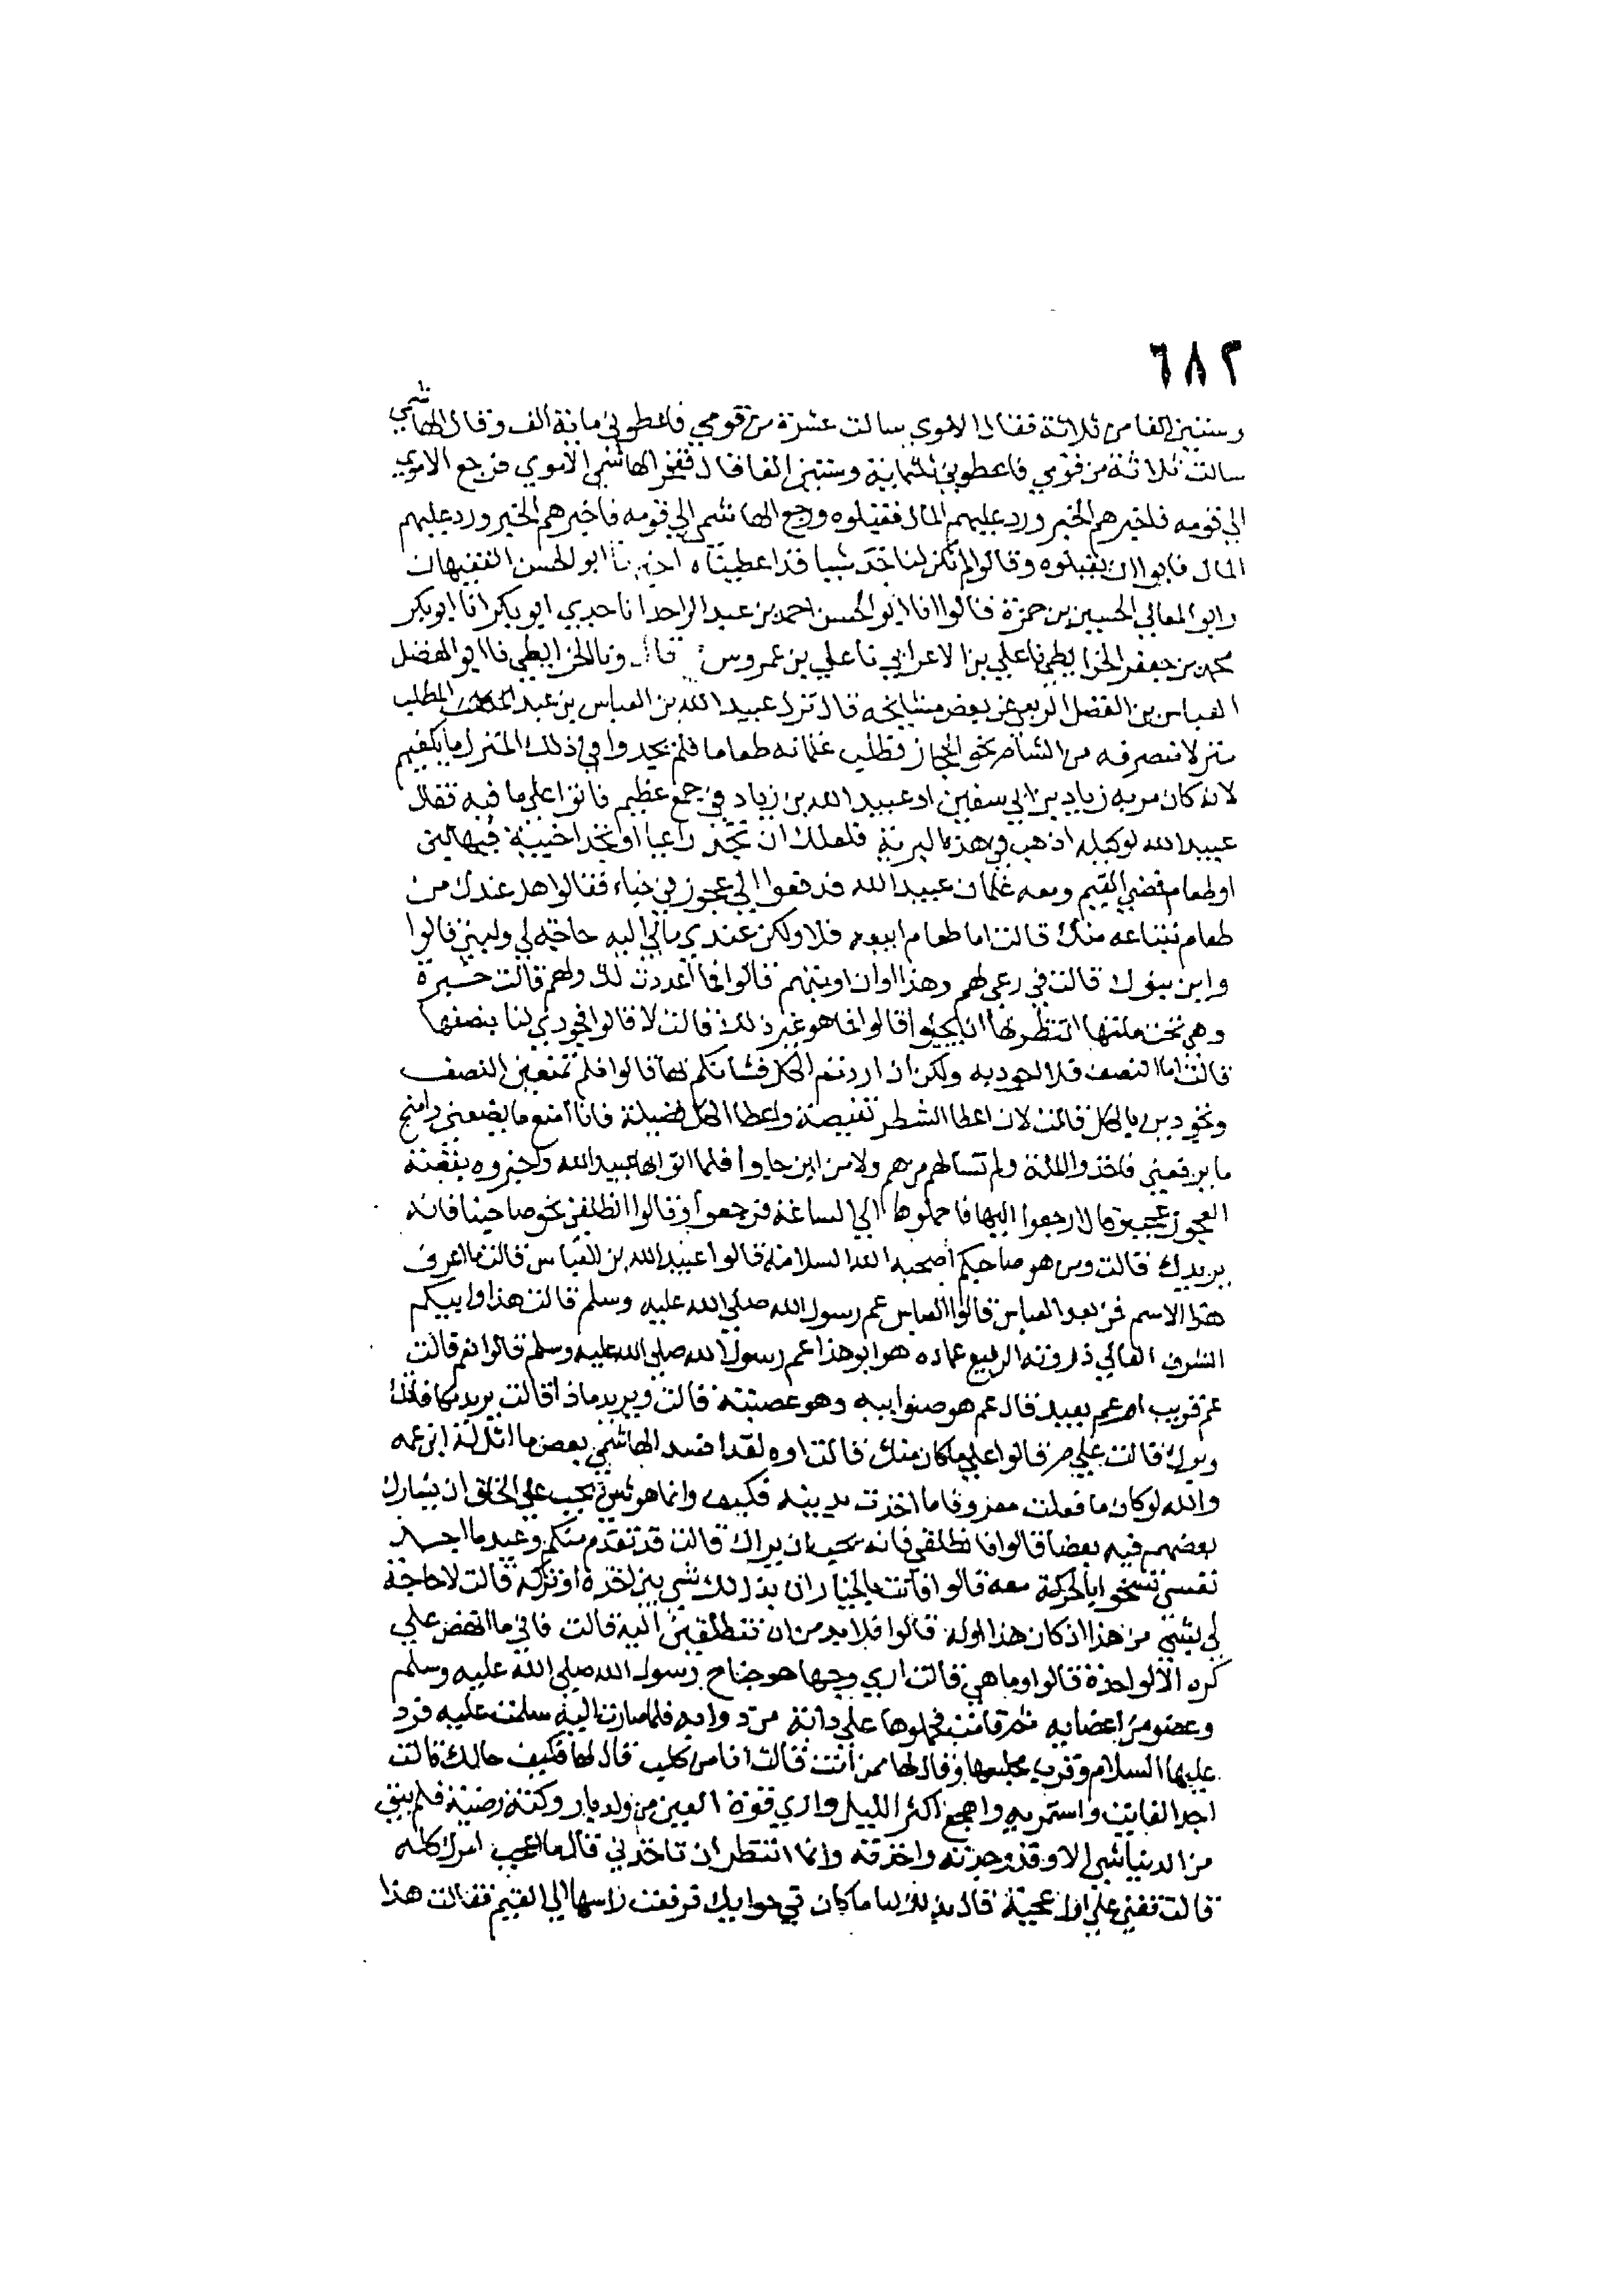 ٦٨٢
وستين الفا من ثلاثة فقال الاموي سالت عشرة من قومي فاعطوني مائة الف وقال الهاشمي
سالت ثلاثة من قومي فاعطوني ثلثمائة وستين الفا قال ففخر الهاشمي الاموي فرجع الاموي
الي قومه فاخبرهم الخبر ورد عليهم المال فقبلوه ورجع الهاشمي الي قومه فاخبرهم الخبر ورد عليهم
المال فابوا ان يقبلوه وقالوا لم نكن لناخذ شيا قد اعطيناه اخبرنا ابو الحسن الفقيهان
وابو المعالي الحسين بن حمزة قالوا انا ابو الحسن احمد بن عبد الواحد انا جدي ابو بكر انا ابو بكر
محمد بن جعفر الخرايطي نا علي بن الاعرابي نا علي بن عمروس قال ونا الخرايطي نا ابو الفضل
العباس بن الفضل الربعي عن بعض مشايخه قال نزل عبيد الله بن العباس بن عبد المطلب
منزلا منصرفه من الشام نحو الحجاز فطلب غلمانه طعاما فلم يجدوا في ذلك المنزل ما يكفيهم
لانه كان مر به زياد بن ابي سفين او عبيد الله بن زياد في جمع عظيم فاتوا علي ما فيه فقال
عبيد الله لوكيله اذهب في هذه البرية فلعلك ان تجد راعيا او تجد اخبية فيها لبن
او طعام فمضي القيم ومعه غلمان عبيد الله فدفعوا الي عجوز في خباء فقالوا هل عندك من
طعام نبتاعه منك قالت اما طعام ابيعه فلا ولكن عندي ما بي اليه حاجة لي ولبني قالوا
واين بنوك قالت في رعي لهم وهذا اوان اوبتهم قالوا فما اعددت لك ولهم قالت خبزة
وهي تحت ملتها انتظر بها ان يجيوا قالوا فما هو غير ذلك قالت لا قالوا فجودي لنا بنصفها
قالت اما النصف فلا اجود به ولكن ان اردتم الكل فشانكم بها قالوا فلم تمنعين النصف
وتجودين بالكل قالت لان اعطا الشطر نقيصة واعطا الكل فضيلة فانا امنع ما يضعني وامنح
ما يرفعني فاخذوا الملة ولم تسالهم من هم ولا من اين جاوا فلما اتوا بها عبيد الله واخبروه بقصة
العجوز عجب وقال ارجعوا اليها فاحملوها الي الساعة فرجعوا وقالوا انطلقي نحو صاحبنا فانه
يريدك قالت ومن هو صاحبكم اصحبه الله السلامة قالوا عبيد الله بن العباس قالت ما اعرف
هذا الاسم فمن بعد العباس قالوا العباس عم رسول الله صلي الله عليه وسلم قالت هذا وابيكم
الشرف العالي ذروته الرفيع عماده هو ابو هذا عم رسول الله صلي الله عليه وسلم قالوا نعم قالت
عم قريب ام عم بعيد قال عم هو صنو ابيه وهو عصبته قالت ويريد ماذا قالت يريد مكافاتك
وبرك قالت علي م قالوا علي ما كان منك قالت اوه لقد افسد الهاشمي بعض ما اثل له ابن عمه
والله لو كان ما فعلت معروفا ما اخذت بدينه فكيف وانما هو شي يجب علي الخلق ان يشارك
بعضهم فيه بعضا قالوا فانطلقي فانه يحب ان يراك قالت قد تقدم منكم وعيد ما اجد
نفسي تسخوا بالحركة معه قالوا فانت بالخيار ان بذل لك شي بين اخذه او تركه قالت لا حاجة
لي بشي من هذا اذ كان هذا اوله قالوا فلا بد من ان تنطلقي اليه قالت فاني ما انهض علي
كره الا لواحدة قالوا وما هي قالت اري وجها هو جناح رسول الله صلي الله عليه وسلم
وعضو من اعضايه ثم قامت فحملوها علي دابة من دوابه فلما صارت اليه سلمت عليه فرد
عليها السلام وقرب مجلسها وقال لها ممن انت قالت انا من كلب قال لها فكيف حالك قالت
اجد الفايت واستمريه واهجع اكثر الليل واري قوة العين من ولد بار وكنة رضية فلم يبق
من الدنيا شي الا وقد وجدته واخذته وانما انتظر ان تاخذني قال ما اعجب امرك كله
قالت قفني علي اول عجبه قال بذلك لنا ما كان في حوايك فرفعت راسها الي القيم فقالت هذا